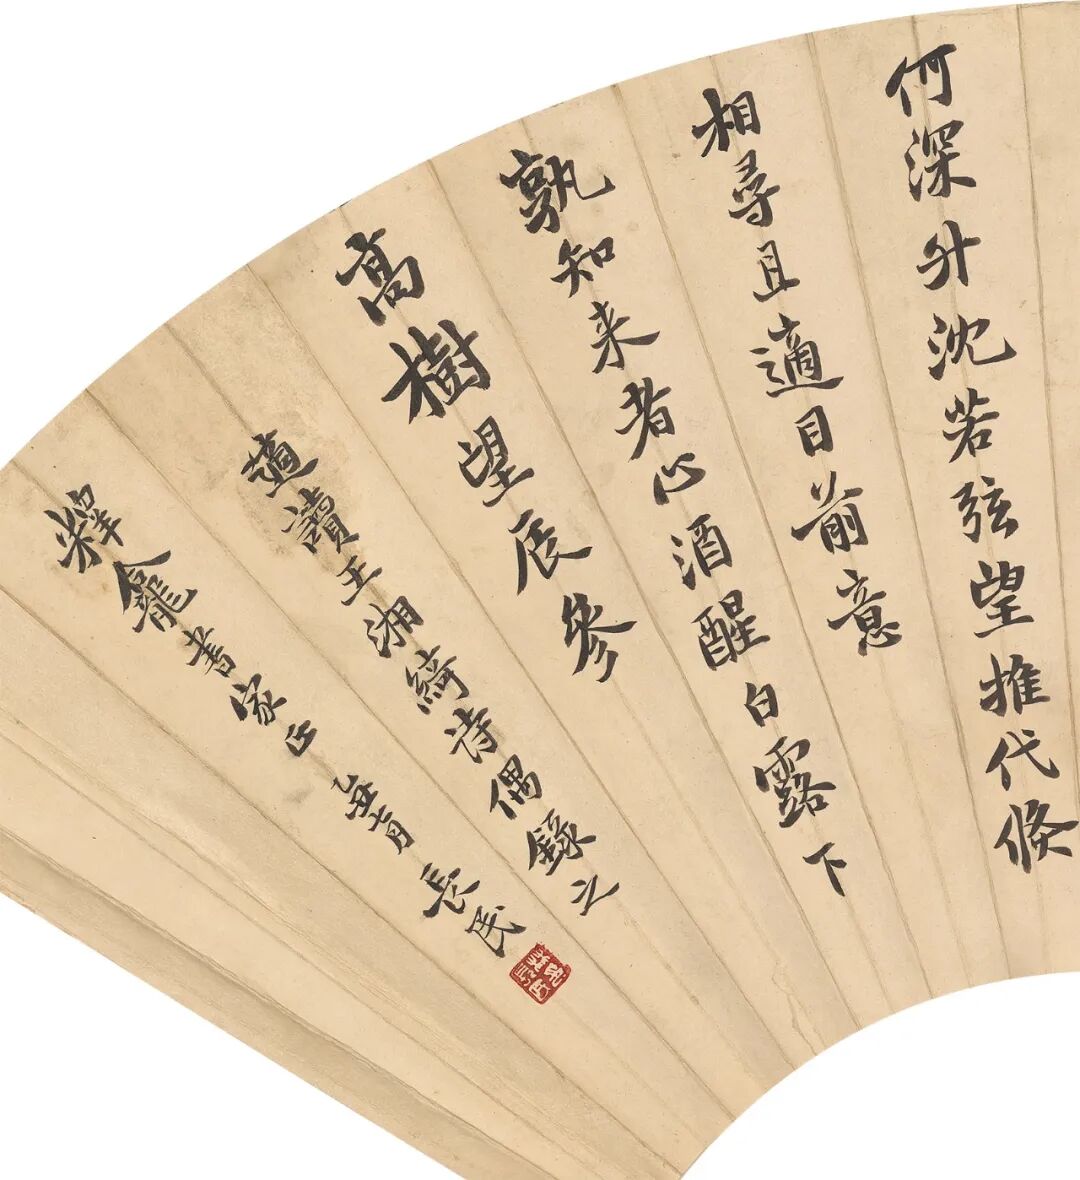 何深升沈若弦望推代倏
相尋且適目前意
孰知来者心酒醒白露下
高樹望辰參
適讀王湘綺詩偶錄之
釋龕書家正 乙丑七月 長民